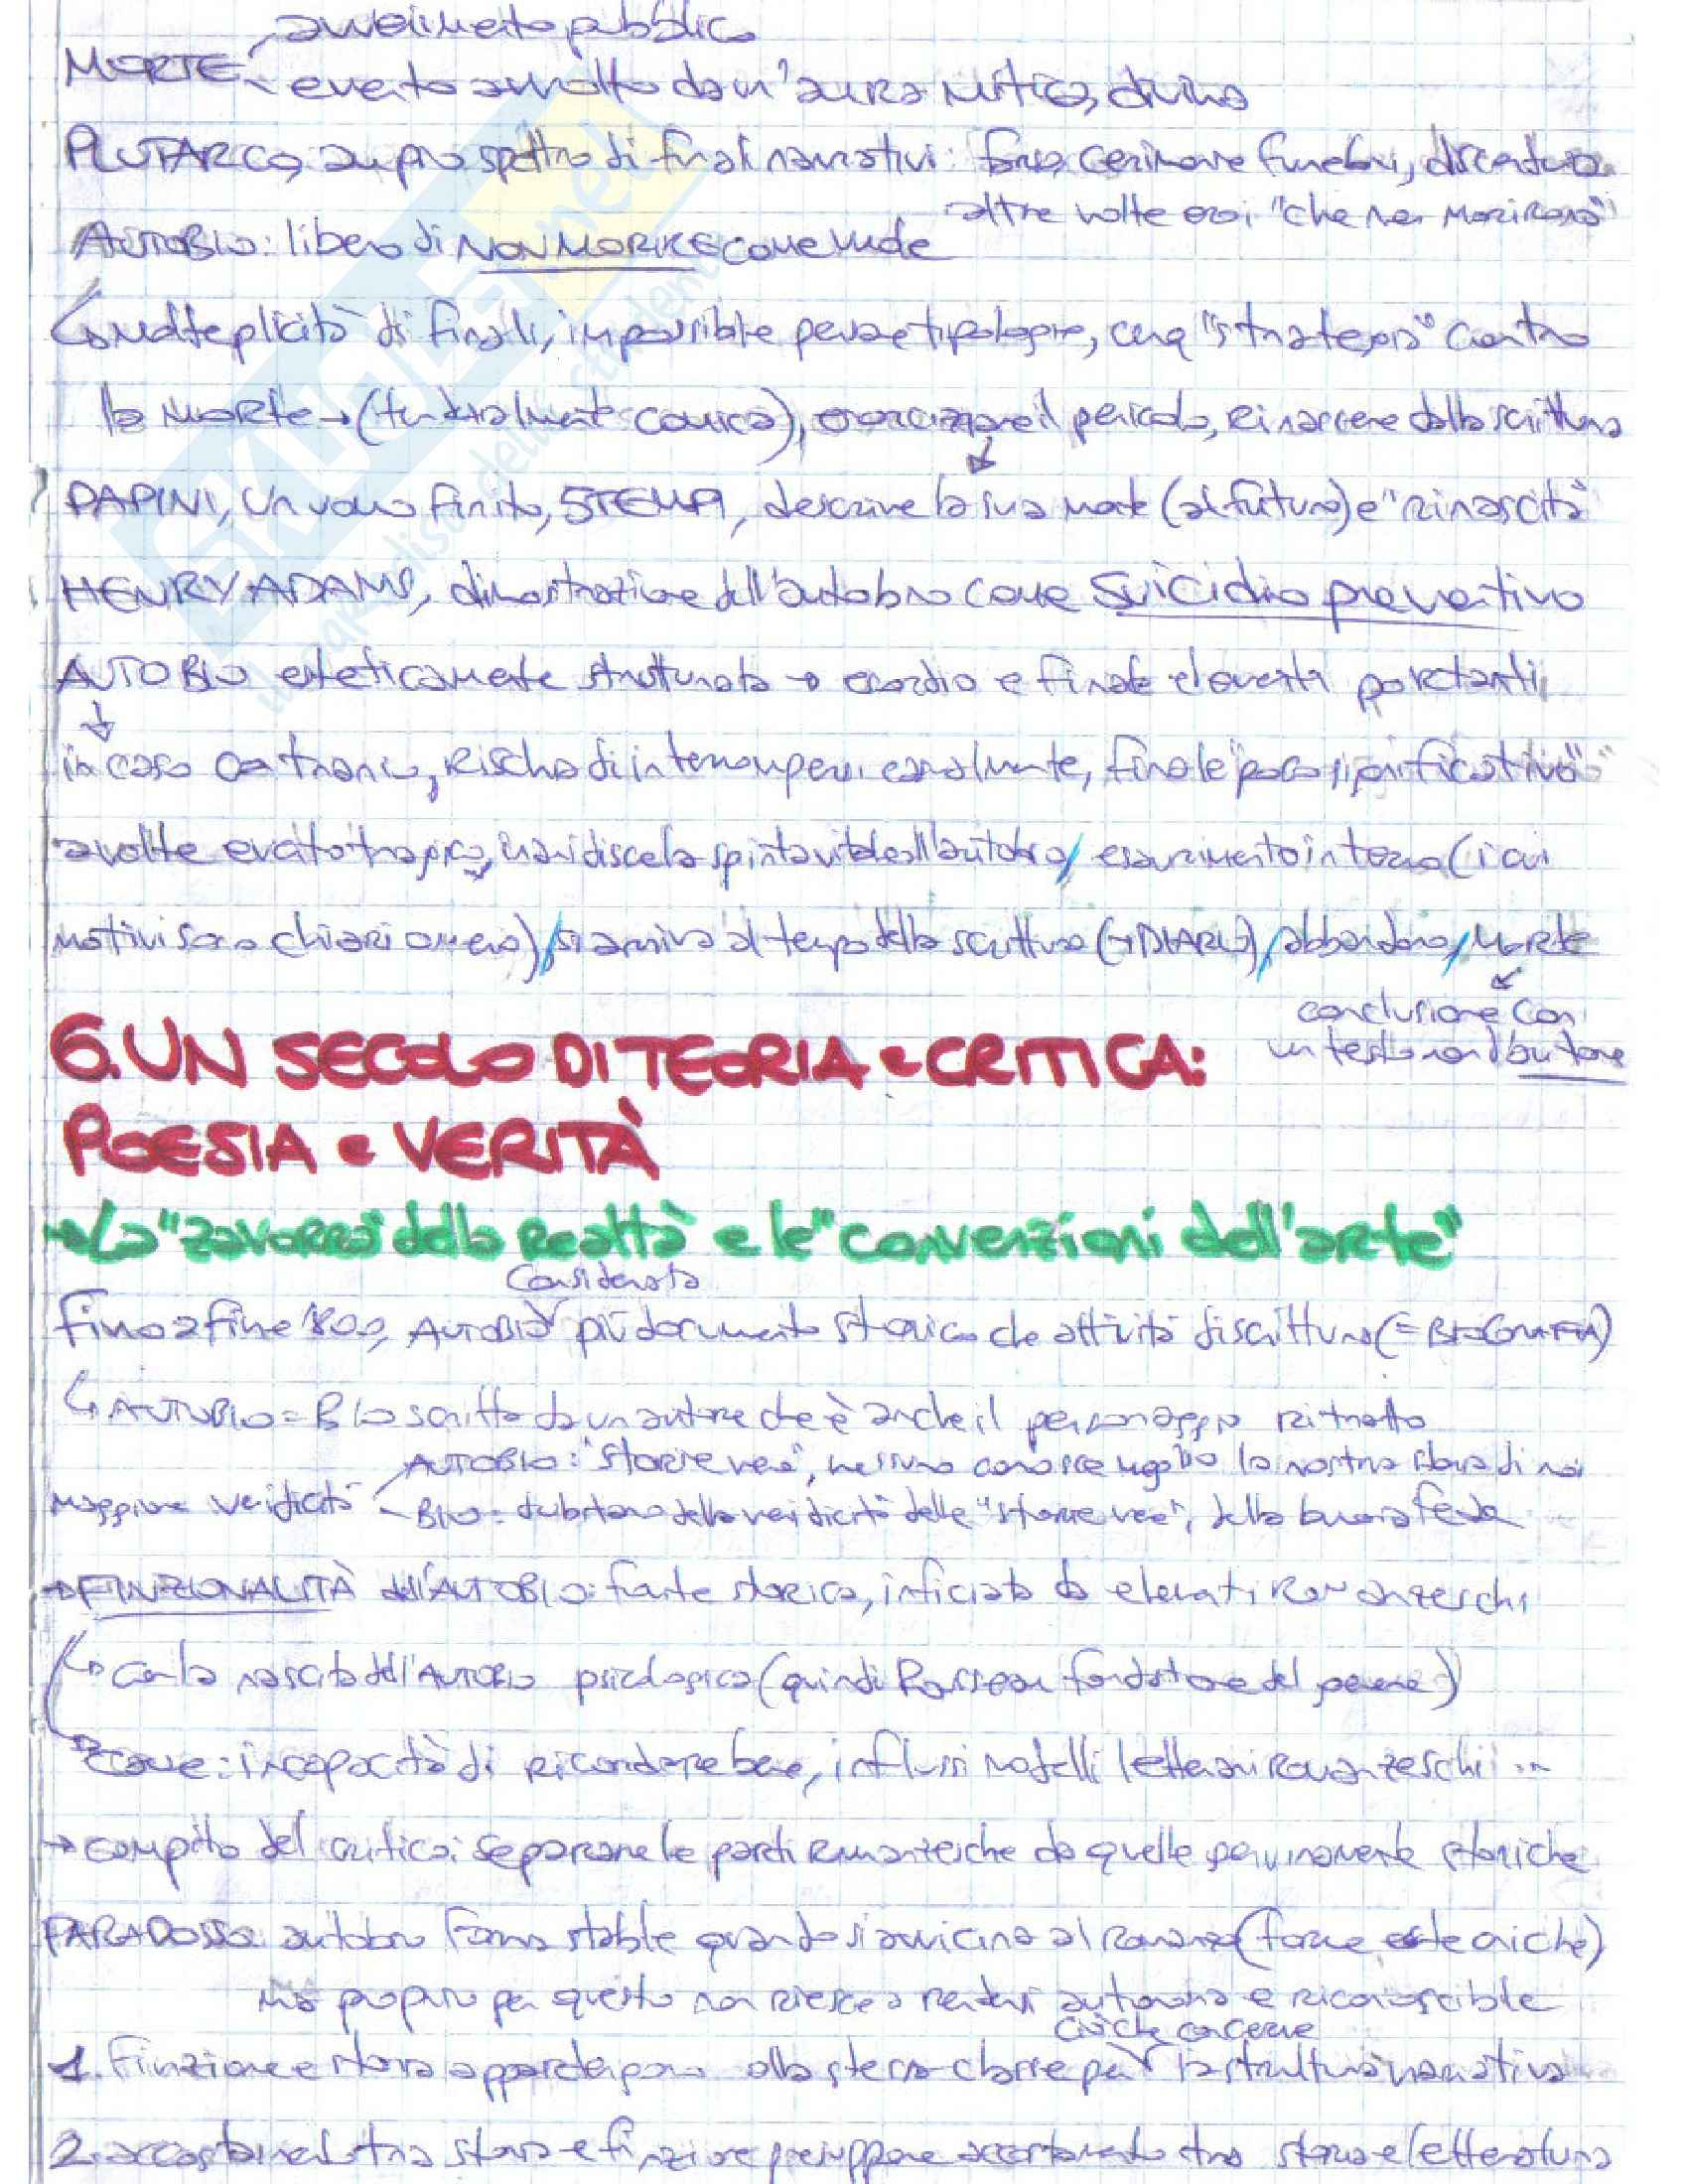 avvenimento pubblico
MORTE
evento avvolto da un'aura mitica, divina
PLUTARCO, ampio spettro di finali narrativi: cerimonie funebri,
altre volte eroi "che non morirono"
AUTOBIO: libero di NON MORIRE come vuole
molteplicità di finali, impossibile tipologie, "strategia" contro
la morte → (tendenzialmente comica), esorcizzare il pericolo, rinascere dalla scrittura
PAPINI, Un uomo finito, descrive la sua morte (al futuro) e "rinascita"
HENRY ADAMS, dimostrazione dell'autobio come suicidio preventivo
AUTOBIO esteticamente strutturata → esordio e finale elementi portanti
in caso contrario, rischio di interrompersi casualmente, finale "poco significativo"
a volte evento tragico, la spinta vitale all'autobio / esaurimento interno (i cui
motivi sono chiari o meno) / si arriva al tempo della scrittura (→ DIARIO) / abbandono / morte
conclusione con
un testo non d'autore
6. UN SECOLO DI TEORIA e CRITICA:
POESIA e VERITÀ
→ La "zavorra" della realtà e le "convenzioni dell'arte"
considerata
Fino a fine '800, AUTOBIO più documento storico che attività di scrittura (= BIOGRAFIA)
AUTOBIO = BIO scritta da un autore che è anche il personaggio ritratto
AUTOBIO: "storie vere", nessuno conosce meglio la nostra storia di noi
maggiore veridicità
BIO: dubitano della veridicità delle "storie vere", della buona fede
→ FINZIONALITÀ dell'AUTOBIO: fonte storica, inficiata da elementi romanzeschi
con la nascita dell'AUTOBIO psicologica (quindi Rousseau fondatore del genere)
come: incapacità di ricordare bene, influssi modelli letterari romanzeschi ...
→ compito del critico: separare le parti romanzesche da quelle genuinamente storiche
PARADOSSO: autobio forma stabile quando si avvicina al romanzo (forme esteriche)
ma proprio per questo non riesce a rendersi autonoma e riconoscibile
ciò che concerne
1. Finzione e storia appartengono alla stessa classe per la struttura narrativa
2. accostamento tra storia e finzione presuppone accostamento tra storia e letteratura